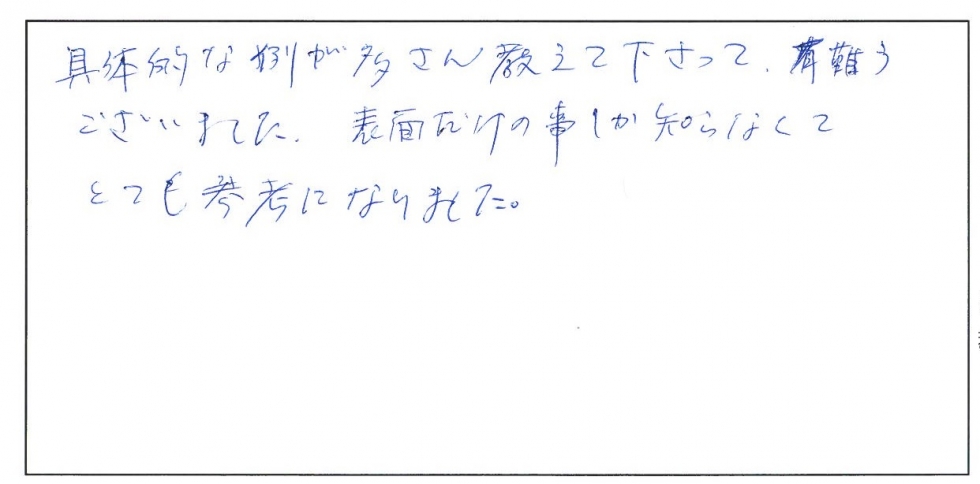 具体的な例が多さん教えて下さって、有難う
ございました。表面だけの事しか知らなくて
とても参考になりました。